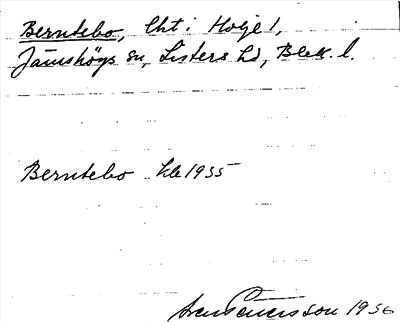 Berntebo, lht i Holje 1,
Jämshögs sn, Listers hd, Blek. l.
Berntebo hle 1935
Sven Petersson 1936